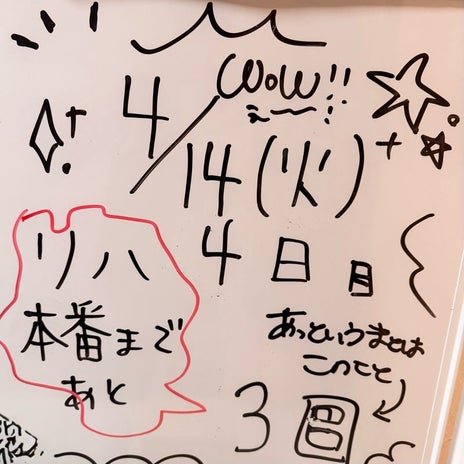 wow!!
え〜!!
4/14(火)
リハ 4日目
本番まで
あと 3日
あっというまとは
このこと